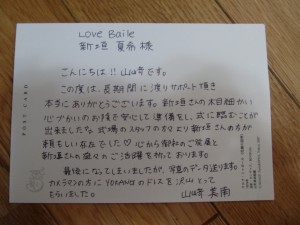 Love Baile
新垣 夏希 様
こんにちは!! 山﨑です。
この度は、長期間に渡りサポート頂き
本当にありがとうございます。新垣さんの木目細かい
心づかいのお陰で安心して準備をし、式に臨むことが
出来ました。式場のスタッフの方より新垣さんの方が
頼もしい存在でした♡ 心から御社のご発展と
新垣さんの益々のご活躍を祈っております。
最後になってしまいましたが、写真のデータ送ります。
カメラマンの方に YORANGのドレスを沢山とって
もらいました。
山﨑 美南
POST CARD